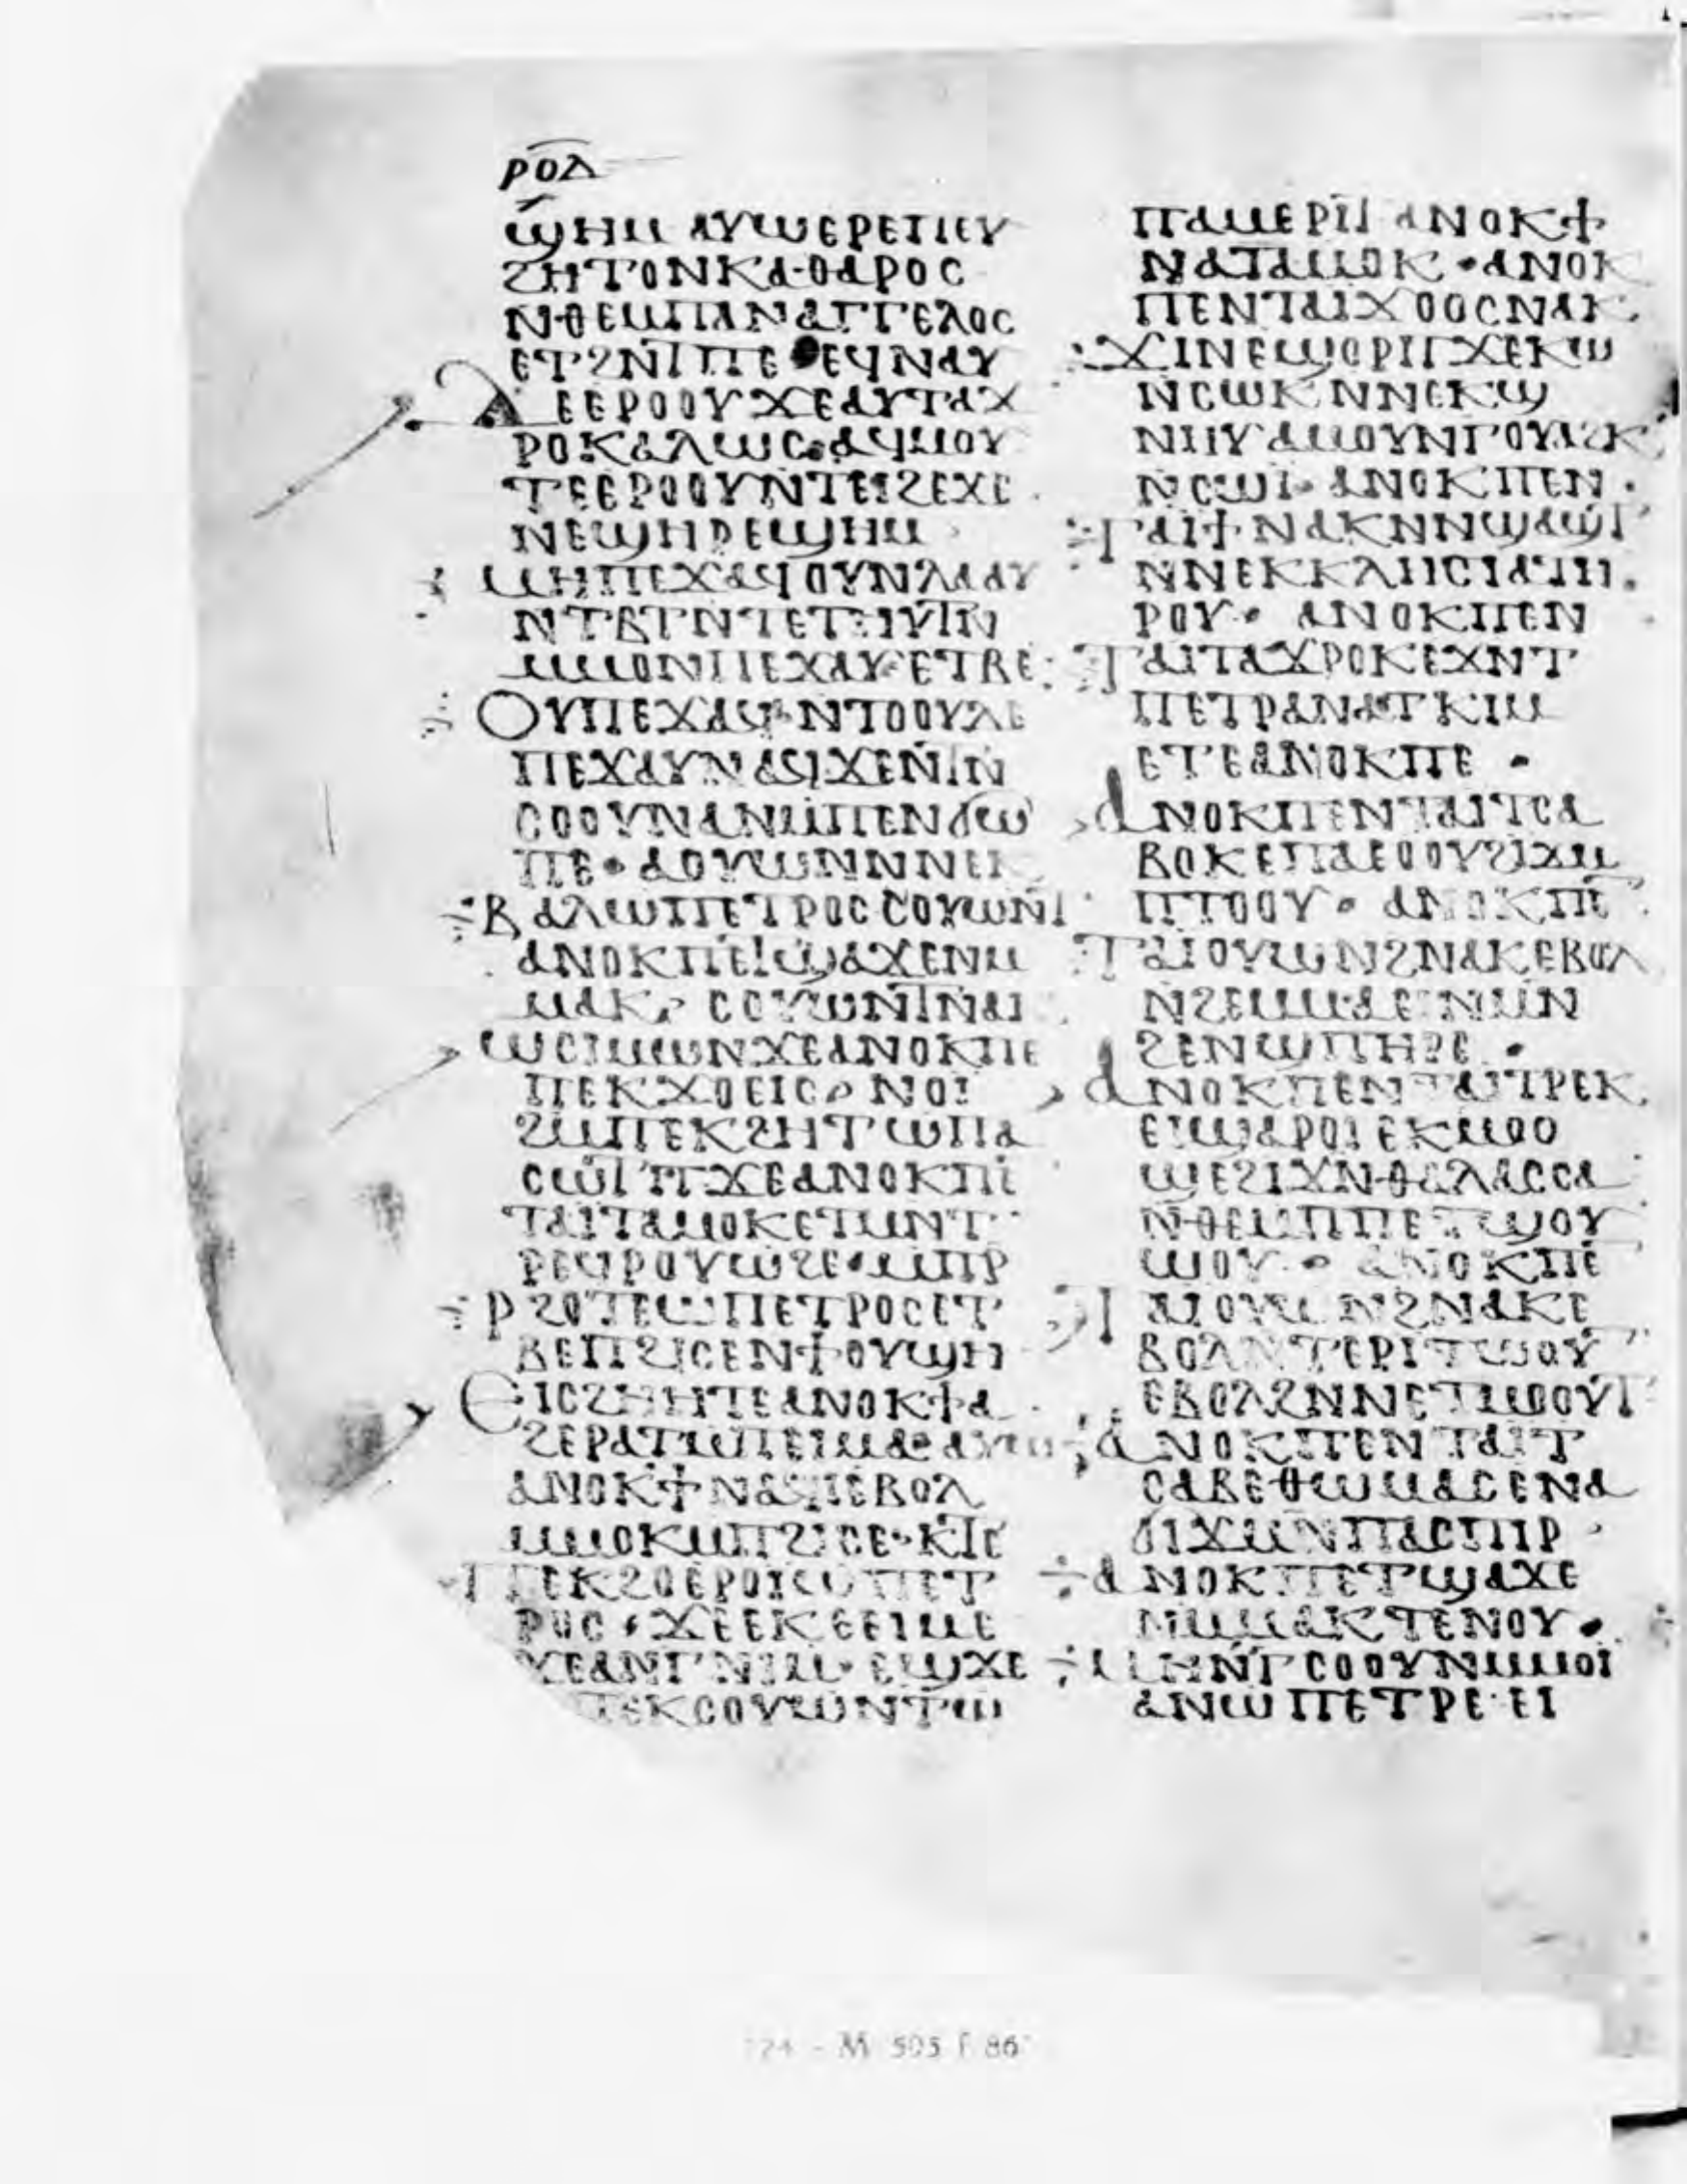 ⲣⲟⲇ
ϣⲏⲙ ⲁⲩⲱⲉⲣⲉⲡⲉⲩ
ϩⲏⲧⲟⲛⲕⲁⲑⲁⲣⲟⲥ
ⲛⲑⲉⲙⲡⲁⲛⲁⲅⲅⲉⲗⲟⲥ
ⲉⲧϩⲛⲧⲡⲉ ⲉϥⲛⲁⲩ
ⲇⲉⲉⲣⲟⲟⲩϫⲉⲁⲩⲧⲁϫ
ⲣⲟⲕⲁⲗⲱⲥ·ⲁϥⲙⲟⲩ
ⲧⲉⲉⲣⲟⲟⲩⲛⲧⲉⲓϩⲉϫⲉ
ⲛⲉϣⲏⲣⲉϣⲏⲙ
ⲙⲏⲡⲉϫⲁϥⲟⲩⲛⲗⲁⲁⲩ
ⲛⲧⲃⲧⲛⲧⲉⲧⲏⲩⲧⲛ
ⲙⲙⲟⲛⲡⲉϫⲁⲩ·ⲉⲧⲃⲉ
ⲟⲩⲡⲉϫⲁϥ·ⲛⲧⲟⲟⲩⲇⲉ
ⲡⲉϫⲁⲩⲛⲁϥϫⲉⲛⲧⲛ
ⲥⲟⲟⲩⲛⲁⲛⲙⲡⲉⲛϭⲱ
ⲡⲉ·ⲁⲟⲩⲱⲛⲛⲛⲉⲕ
ⲃⲁⲗⲱⲡⲉⲧⲣⲟⲥⲥⲟⲩⲱⲛⲧ
ⲁⲛⲟⲕⲡⲉⲧϣⲁϫⲉⲛⲙ
ⲙⲁⲕ· ⲥⲟⲩⲱⲛⲧⲛⲁⲓ
ⲱⲥⲓⲙⲱⲛϫⲉⲁⲛⲟⲕⲡⲉ
ⲡⲉⲕϫⲟⲉⲓⲥ·ⲛⲟⲓ
ϩⲙⲡⲉⲕϩⲏⲧⲱⲡⲁ
ⲥⲱⲧⲡϫⲉⲁⲛⲟⲕⲡⲉ
ⲧⲁⲓⲧⲁⲙⲟⲕⲉⲧⲙⲛⲧ
ⲣⲉϥⲣⲟⲩⲱϩⲉ·ⲙⲡⲣ
ⲣϩⲟⲧⲉⲱⲡⲉⲧⲣⲟⲥⲉⲧ
ⲃⲉⲡϩⲓⲥⲉⲛϯⲟⲩϣⲏ
ⲉⲓⲥϩⲏⲏⲧⲉⲁⲛⲟⲕϯⲁ
ϩⲉⲣⲁⲧⲙⲡⲉⲓⲙⲁ·ⲁⲩⲱ
ⲁⲛⲟⲕϯⲛⲁϥⲓⲉⲃⲟⲗ
ⲙⲙⲟⲕⲙⲡϩⲓⲥⲉ·ⲕⲧⲉ
ⲡⲉⲕϩⲟⲉⲣⲟⲓⲱⲡⲉⲧ
ⲣⲟⲥ·ϫⲉⲉⲕⲉⲉⲓⲙⲉ
ϫⲉⲁⲛⲅⲛⲓⲙ·ⲉϣϫⲉ
ⲙⲡⲉⲕⲥⲟⲩⲱⲛⲧⲱ
ⲡⲁⲙⲉⲣⲓⲧ ⲁⲛⲟⲕϯ
ⲛⲁⲧⲁⲙⲟⲕ·ⲁⲛⲟⲕ
ⲡⲉⲛⲧⲁⲓϫⲟⲟⲥⲛⲁⲕ
ϫⲓⲛⲉϣⲟⲣⲡϫⲉⲕⲱ
ⲛⲥⲱⲕⲛⲛⲉⲕϣ
ⲛⲏⲩⲁⲙⲟⲩⲛⲅⲟⲩⲁϩⲕ
ⲛⲥⲱⲓ· ⲁⲛⲟⲕⲡⲉⲛ
ⲧⲁⲓϯⲛⲁⲕⲛⲛϣⲁϣⲧ
ⲛⲛⲉⲕⲕⲗⲏⲥⲓⲁⲧⲏ
ⲣⲟⲩ· ⲁⲛⲟⲕⲡⲉⲛ
ⲧⲁⲓⲧⲁϫⲣⲟⲕⲉϫⲛⲧ
ⲡⲉⲧⲣⲁⲛⲁⲧⲕⲓⲙ
ⲉⲧⲉⲁⲛⲟⲕⲡⲉ ·
ⲁⲛⲟⲕⲡⲉⲛⲧⲁⲓⲧⲥⲁ
ⲃⲟⲕⲉⲡⲁⲉⲟⲟⲩϩⲓϫⲙ
ⲡⲧⲟⲟⲩ· ⲁⲛⲟⲕⲡⲉ
ⲧⲁⲓⲟⲩⲱⲛϩⲛⲁⲕⲉⲃⲟⲗ
ⲛϩⲉⲙⲙⲁⲉⲓⲛⲙⲛ
ϩⲉⲛϣⲡⲏⲣⲉ ·
ⲁⲛⲟⲕⲡⲉⲛⲧⲁⲓⲧⲣⲉⲕ
ⲉⲓϣⲁⲣⲟⲓⲉⲕⲙⲟⲟ
ϣⲉϩⲓϫⲛⲑⲁⲗⲁⲥⲥⲁ
ⲛⲑⲉⲙⲡⲡⲉⲧϣⲟⲩ
ⲱⲟⲩ · ⲁⲛⲟⲕⲡⲉ
ⲧⲁⲓⲟⲩⲱⲛϩⲛⲁⲕⲉ
ⲃⲟⲗⲛⲧⲉⲣⲓⲧⲱⲟⲩ
ⲉⲃⲟⲗϩⲛⲛⲉⲧⲙⲟⲟⲩⲧ
ⲁⲛⲟⲕⲡⲉⲛⲧⲁⲓⲧ
ⲥⲁⲃⲉⲑⲱⲙⲁⲥⲉⲛⲁ
ϭⲓϫⲙⲛⲡⲁⲥⲡⲓⲣ
ⲁⲛⲟⲕⲡⲉⲧϣⲁϫⲉ
ⲛⲙⲙⲁⲕⲧⲉⲛⲟⲩ·
ⲙⲏⲛⲅⲥⲟⲟⲩⲛⲙⲙⲟⲓ
ⲁⲛⲱⲡⲉⲧⲣⲉ·ⲉⲓ
M 595 f 86